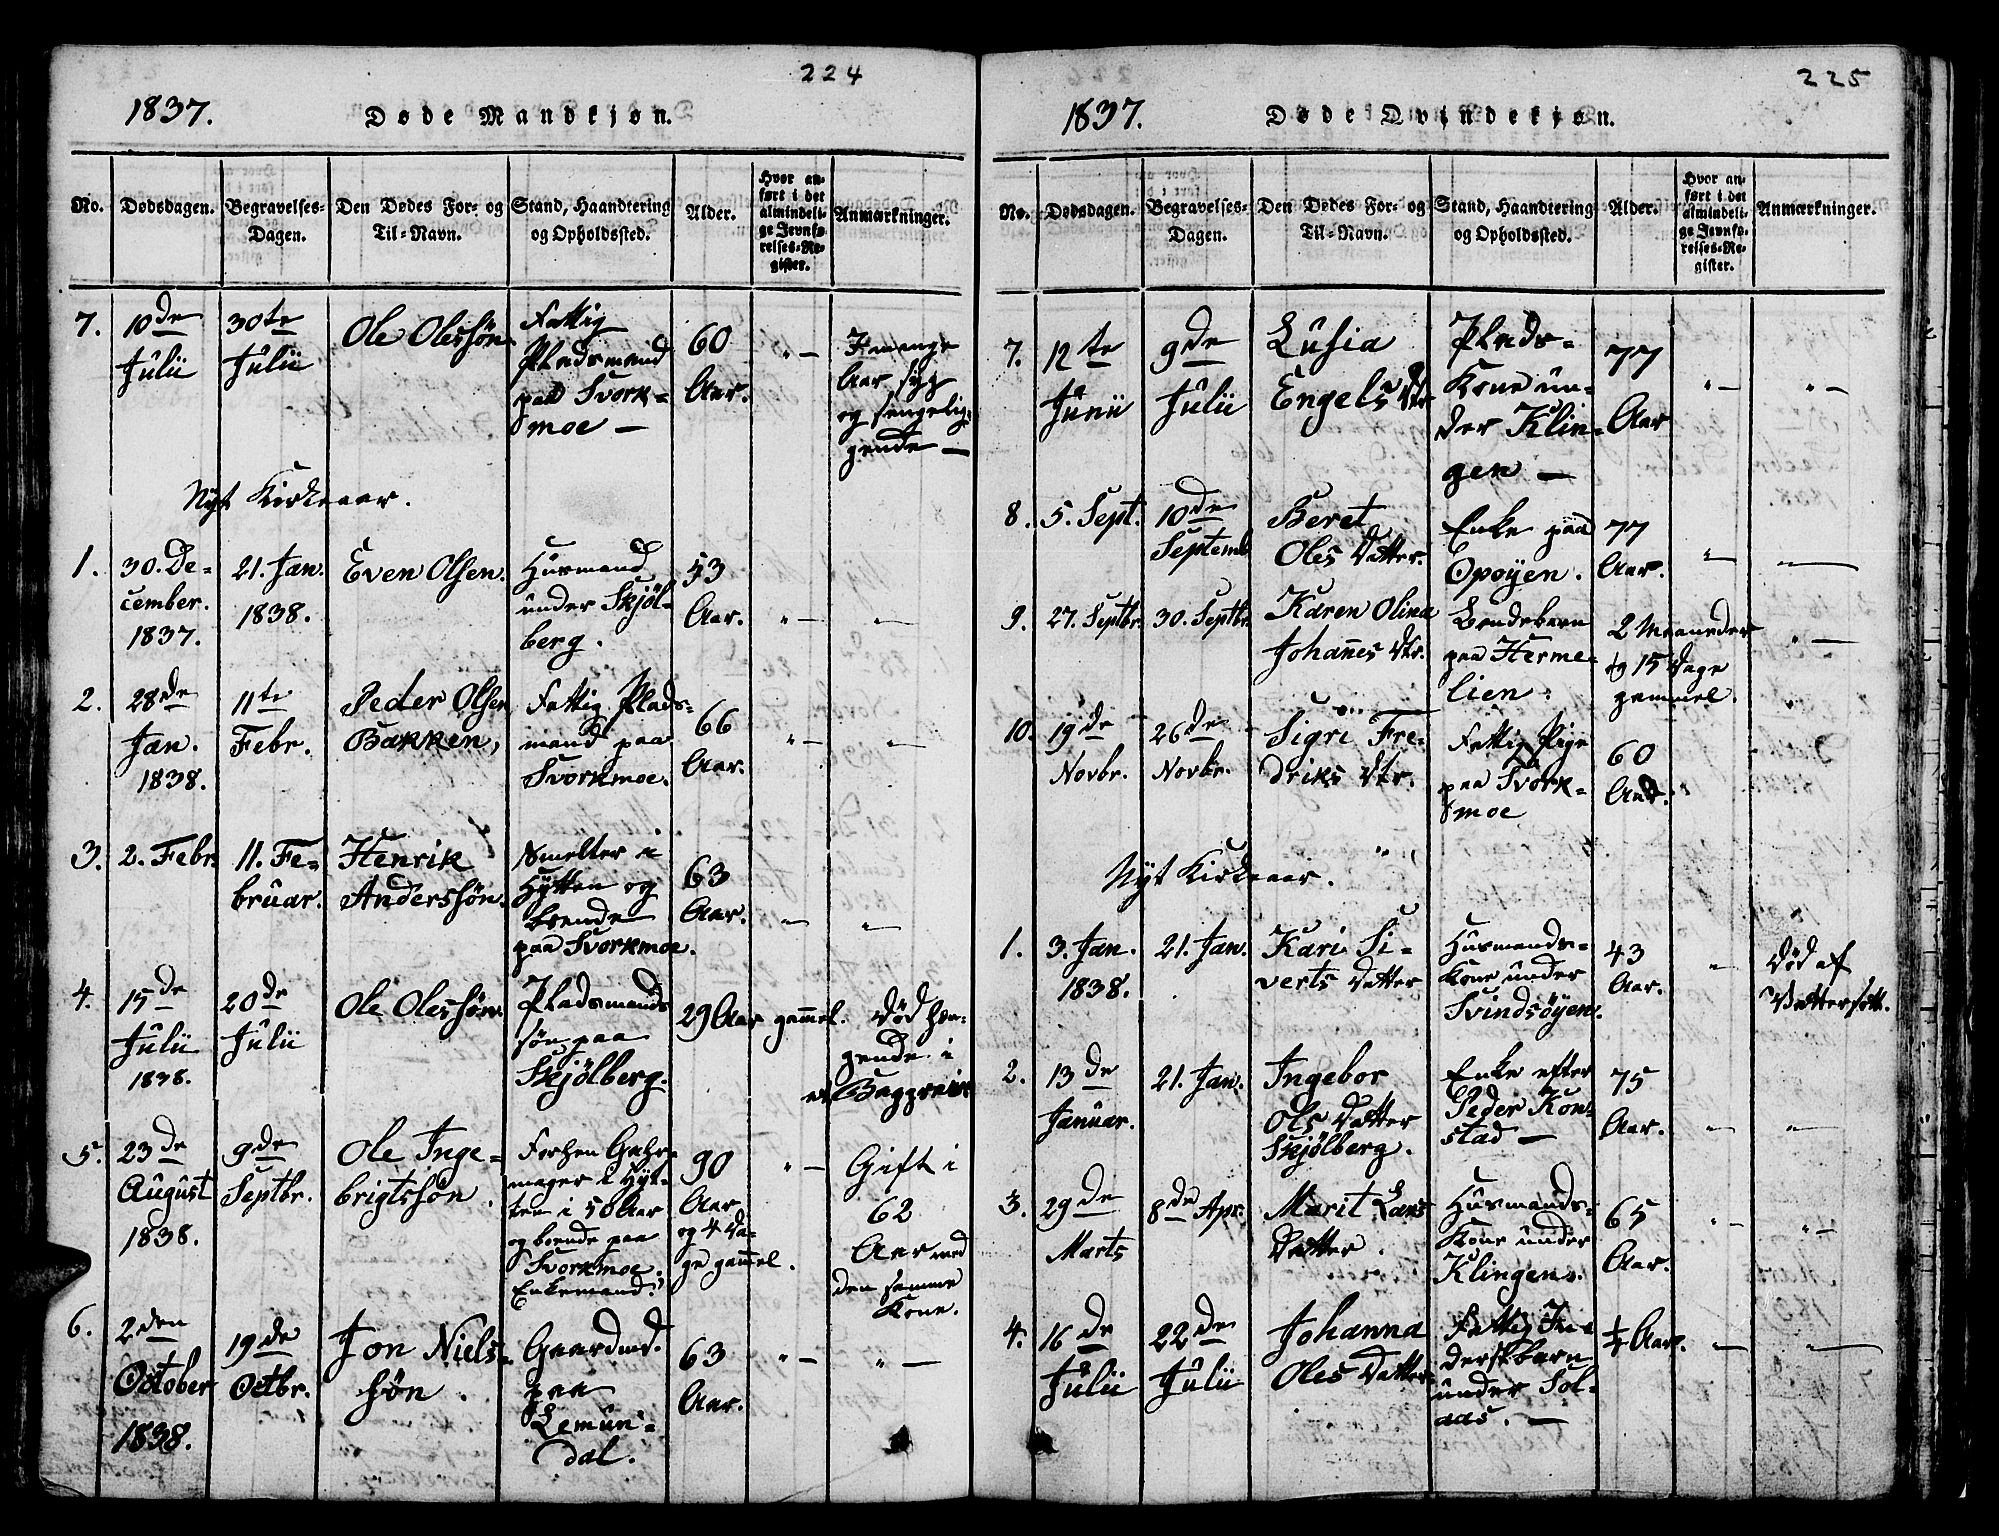 224
1837. Døde Mandkjøn.
No. Dødsdagen. Begravelses-Dagen. Den Dødes For- og Til-Navn. Stand, Haandtering og Opholdssted. Alder. Hvor anført i det almindelige Jevnførelses-Register. Anmærkninger.
7. 10de Julii
30te Julii
Ole Olessøn
Fattig
Pladsmand
paa Svork-
moe —
60
Aar.
" —
I mange
Aar syg
og sengelig-
gende —
Nyt Kirkeaar.
1. 30. De-
cember.
1837.
21. Jan.
1838.
Even Olsen.
Husmand
under Skjøl-
berg.
53
Aar.
" —
" —
2. 28de
Jan.
1838.
11te
Febr.
Peder Olsen
Bakken,
Fattig Plads-
mand paa
Svorkmoe.
66
Aar.
" —
" —
3. 2. Febr.
11. Fe-
bruar.
Henrik
Anderssøn.
Smelter i
Hytten og
boende
paa Svorkmoe.
63
Aar.
" —
" —
4. 15de
Julii
1838.
20de
Julii
Ole Olessøn.
Pladsmands
søn paa
Skjølberg.
29 Aar gammel.
Død hæn-
gende i
Baggreie
5. 23de
August
1838.
9de
Septbr.
Ole Inge-
brigtssøn.
Forhen Gahr-
mager i Hyt-
ten i 50 Aar
og boende paa
Svorkmoe.
Enkemand.
90
Aar
og 4 Da-
ge gammel.
" —
Gift i
62
Aar med
den samme
Kone.
6. 2den
October
1838.
19de
Octbr.
Jon Niels-
søn.
Gaardmd.
paa
Lemun-
dal.
63
Aar.
" —
" —
225
1837. Døde Qvindekjøn.
No. Dødsdagen. Begravelses-Dagen. Den Dødes For- og Til-Navn. Stand, Haandtering og Opholdssted. Alder. Hvor anført i det almindelige Jevnførelses-Register. Anmærkninger.
7. 12te
Junii
9de
Julii
Lusia
Engels Dtr
Plads-
Kone un-
der Klin-
gen —
77
Aar
" —
" —
8. 5. Sept.
10de
Septemb
Beret
Oles Datter.
Enke paa
Opøyen.
77
Aar.
" —
—
9. 27. Septbr.
30. Septbr.
Karen Olina
Johannes Dtr.
Leudebarn
paa Herme-
lien.
2 Maaneder
og 15 Dage
gammel.
" —
10. 19de
Novbr.
26de
Novbr.
Sigri Fre-
driks Dtr.
Fattig Pige
paa Svork-
moe
60
Aar.
Nyt Kirkeaar.
1. 3. Jan.
1838.
21. Jan.
Kari Si-
verts Datter
Husmands-
Kone under
Svindsøyen.
43
Aar.
"
Død af
Vattersott.
2. 13de
Januar.
21. Jan.
Ingebor
Ols Datter
Skjølberg.
Enke efter
Peder Kon-
stad —
75
Aar.
" —
" —
3. 29de
Marts
8de Apr.
Marit Lars
Datter.
Husmands-
Kone under
Klingen.
65
Aar.
" —
" —
4. 16de
Julii
22de
Julii
Johanna
Oles Datter
Fattig In-
derstbarn
under Sol-
aas. —
Aar.
" —
" —